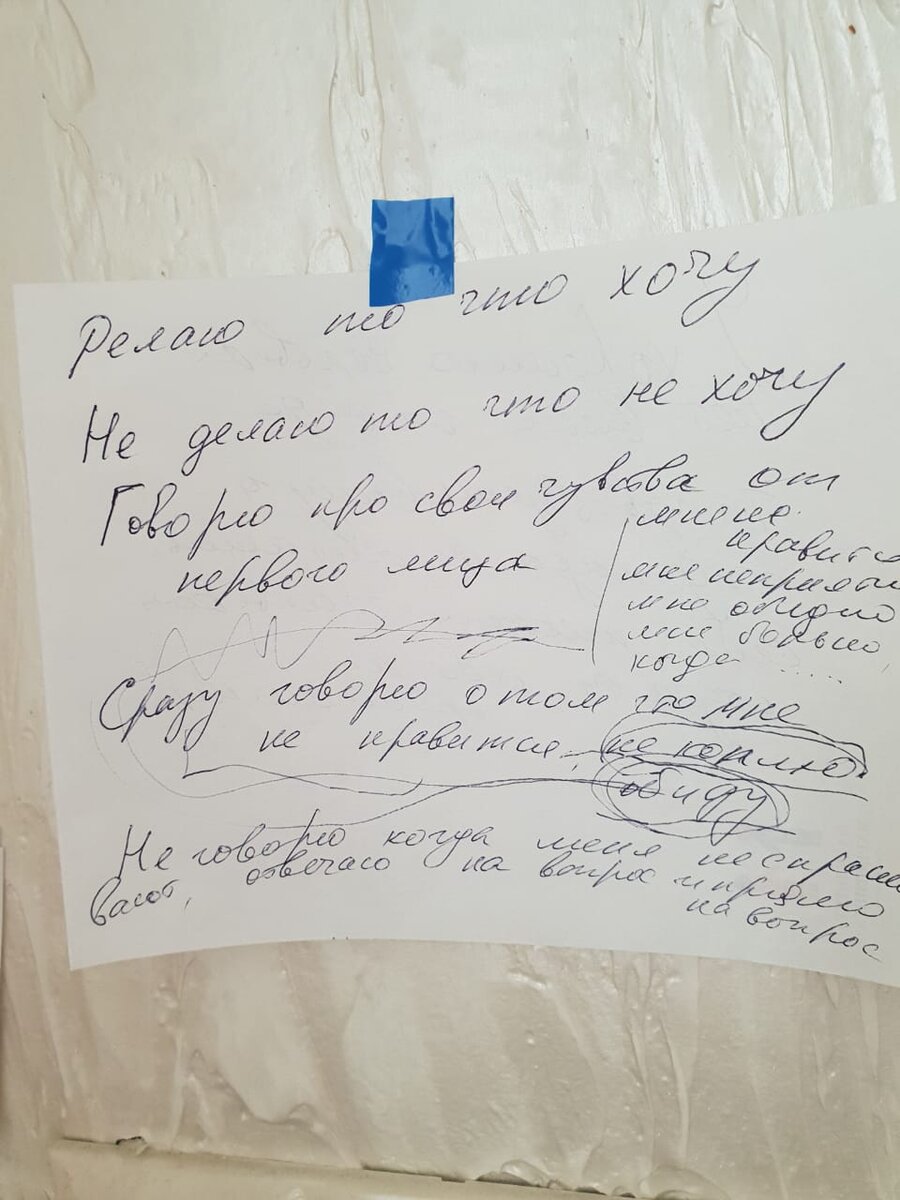 Делаю то что хочу
Не делаю то что не хочу
Говорю про свои чувства от
первого лица
мне не
нравится
мне неприятн
мне обидно
мне больно,
когда .....
Сразу говорю о том что мне
не нравится, не коплю
обиду
Не говорю когда меня не спраши
вают, отвечаю на вопрос и прямо
на вопрос